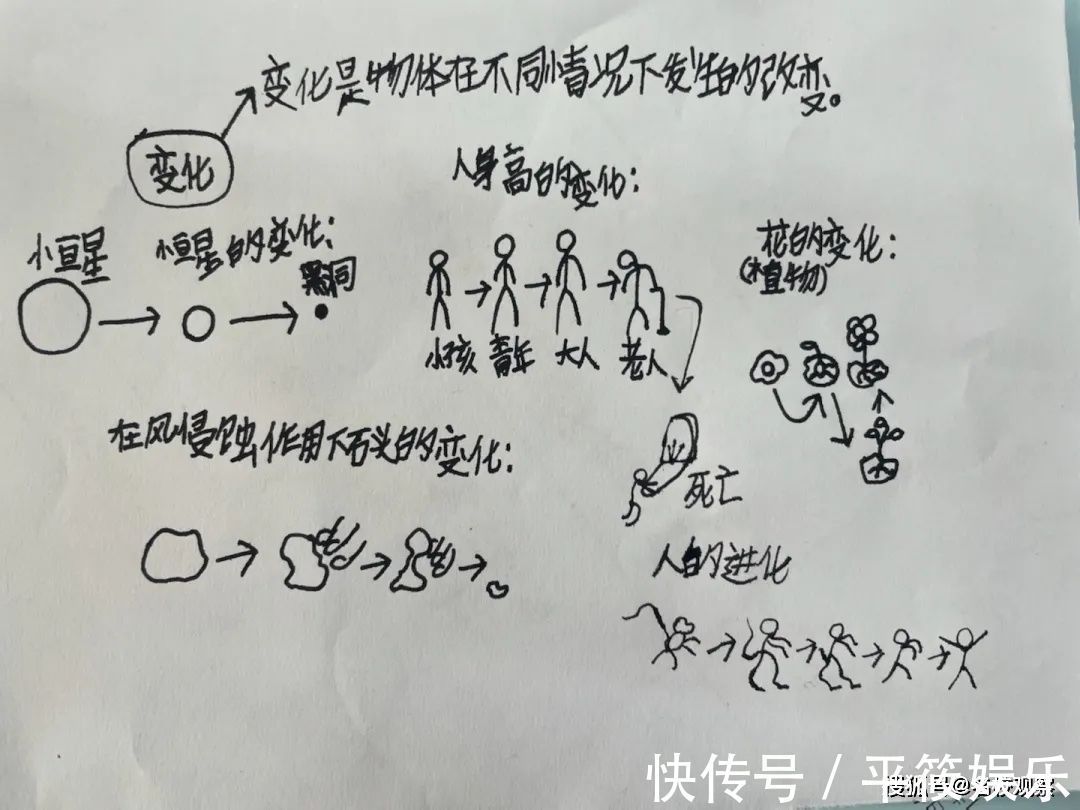 变化是物体在不同情况下发生的改变。
变化
人身高的变化：
小恒星
小恒星的变化：
黑洞
花的变化：
(植物)
小孩 青年 大人 老人
在风侵蚀作用下石头的变化：
死亡
人的进化
快传号 / 平筱娱乐
搜狐号@名校观察